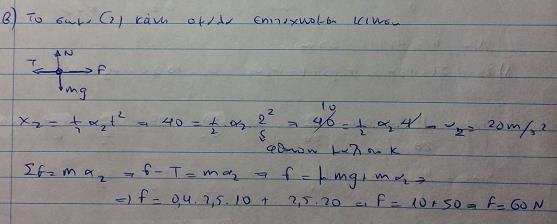 β) Το σωμα (2) κάνει ομαλα επιταχυνόμενη κίνηση
N
T F
mg
x₂ = ½ α₂ t² ⇒ 40 = ½ α₂ 2² ⇒ 40 = ½ α₂ 4 ⇒ α₂ = 20 m/s²
10
ΣF = m α₂ ⇒ F - T = m α₂ ⇒ F = μ mg + m α₂ ⇒
⇒ F = 0,4 . 2,5 . 10 + 2,5 . 20 ⇒ F = 10 + 50 ⇒ F = 60 N